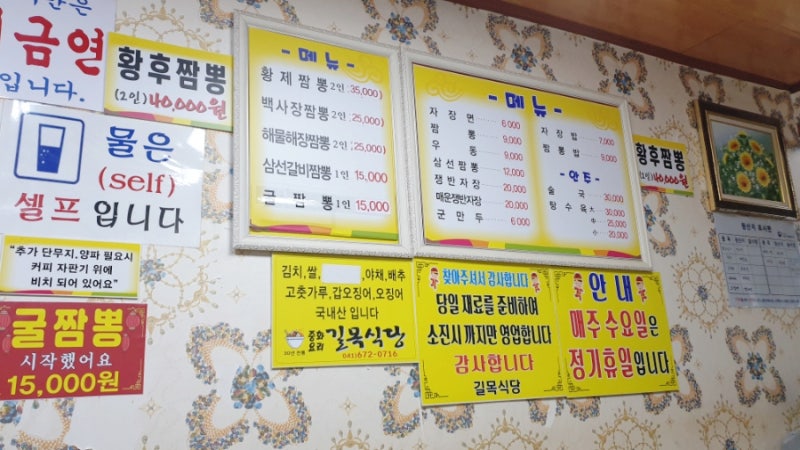 금연
입니다.
황후짬뽕
(2인) 40,000원
물은
(self)
셀프 입니다
"추가 단무지,양파 필요시
커피 자판기 위에
비치 되어 있어요"
굴짬뽕
시작했어요
15,000원
- 메뉴 -
황제짬뽕 2인 (35,000)
백사장짬뽕 2인 (25,000)
해물해장짬뽕 2인 (25,000)
삼선갈비짬뽕 1인 15,000
굴짬뽕 1인 15,000
- 메뉴 -
자장면 6,000
짬뽕 9,000
우동 9,000
삼선짬뽕 12,000
쟁반자장 20,000
매운쟁반자장 20,000
군만두 6,000
자장밥 7,000
짬뽕밥 9,000
- 안주 -
술국 30,000
탕수육 大 30,000
中 25,000
小 20,000
황후짬뽕
(2인) 40,000원
원산지 표시판
김치,쌀, ,야채,배추
고춧가루,갑오징어,오징어
국내산 입니다
중화요리 길목식당
30년 전통
041)672-0716
찾아주셔서 감사합니다
당일 재료를 준비하여
소진시 까지만 영업합니다
감사합니다
길목식당
안내
매주 수요일은
정기휴일입니다